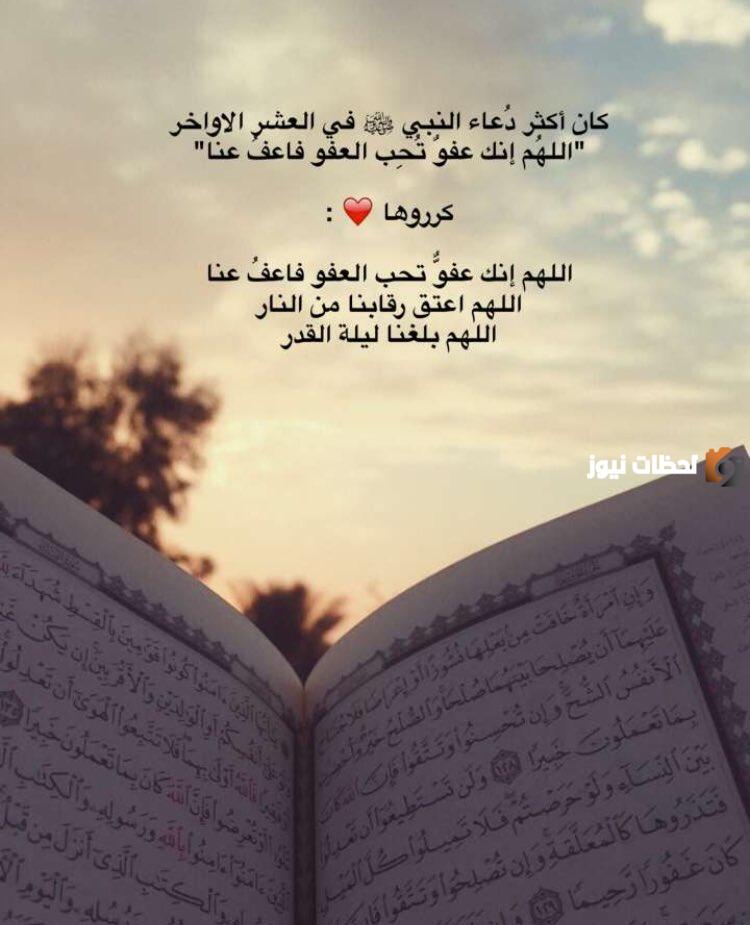 كان أكثر دُعاء النبي ﷺ في العشر الاواخر
"اللهُم إنك عفوٌ تُحِب العفو فاعفُ عنا"
كرروها ❤️ :
اللهم إنك عفوٌّ تحب العفو فاعفُ عنا
اللهم اعتق رقابنا من النار
اللهم بلغنا ليلة القدر
لحظات نيوز
وَإِنِ ٱمْرَأَةٌ خَافَتْ مِنۢ بَعْلِهَا نُشُوزًا أَوْ إِعْرَاضًا فَلَا جُنَاحَ
عَلَيْهِمَآ أَن يُصْلِحَا بَيْنَهُمَا صُلْحًا وَٱلصُّلْحُ خَيْرٌ وَأُحْضِرَتِ
ٱلْأَنفُسُ ٱلشُّحَّ وَإِن تُحْسِنُوا۟ وَتَتَّقُوا۟ فَإِنَّ ٱللَّهَ كَانَ
بِمَا تَعْمَلُونَ خَبِيرًا ١٢٨ وَلَن تَسْتَطِيعُوٓا۟ أَن تَعْدِلُوا۟
بَيْنَ ٱلنِّسَآءِ وَلَوْ حَرَصْتُمْ فَلَا تَمِيلُوا۟ كُلَّ ٱلْمَيْلِ
فَتَذَرُوهَا كَٱلْمُعَلَّقَةِ وَإِن تُصْلِحُوا۟ وَتَتَّقُوا۟ فَإِنَّ
كَانَ غَفُورًا رَّحِيمًا ١٢٩ وَإِن
يَٰٓأَيُّهَا ٱلَّذِينَ ءَامَنُوا۟ كُونُوا۟ قَوَّٰمِينَ بِٱلْقِسْطِ شُهَدَآءَ
أَنفُسِكُمْ أَوِ ٱلْوَٰلِدَيْنِ وَٱلْأَقْرَبِينَ إِن يَكُنْ
فَٱللَّهُ أَوْلَىٰ بِهِمَا فَلَا تَتَّبِعُوا۟ ٱلْهَوَىٰٓ أَن تَعْدِلُوا۟
أَوْ تُعْرِضُوا۟ فَإِنَّ ٱللَّهَ كَانَ بِمَا تَعْمَلُونَ خَبِيرًا ١٣٥
ءَامَنُوٓا۟ ءَامِنُوا۟ بِٱللَّهِ وَرَسُولِهِۦ وَٱلْكِتَٰبِ
وَٱلْكِتَٰبِ ٱلَّذِىٓ أَنزَلَ مِن قَبْلُ
وَٱلْيَوْمِ